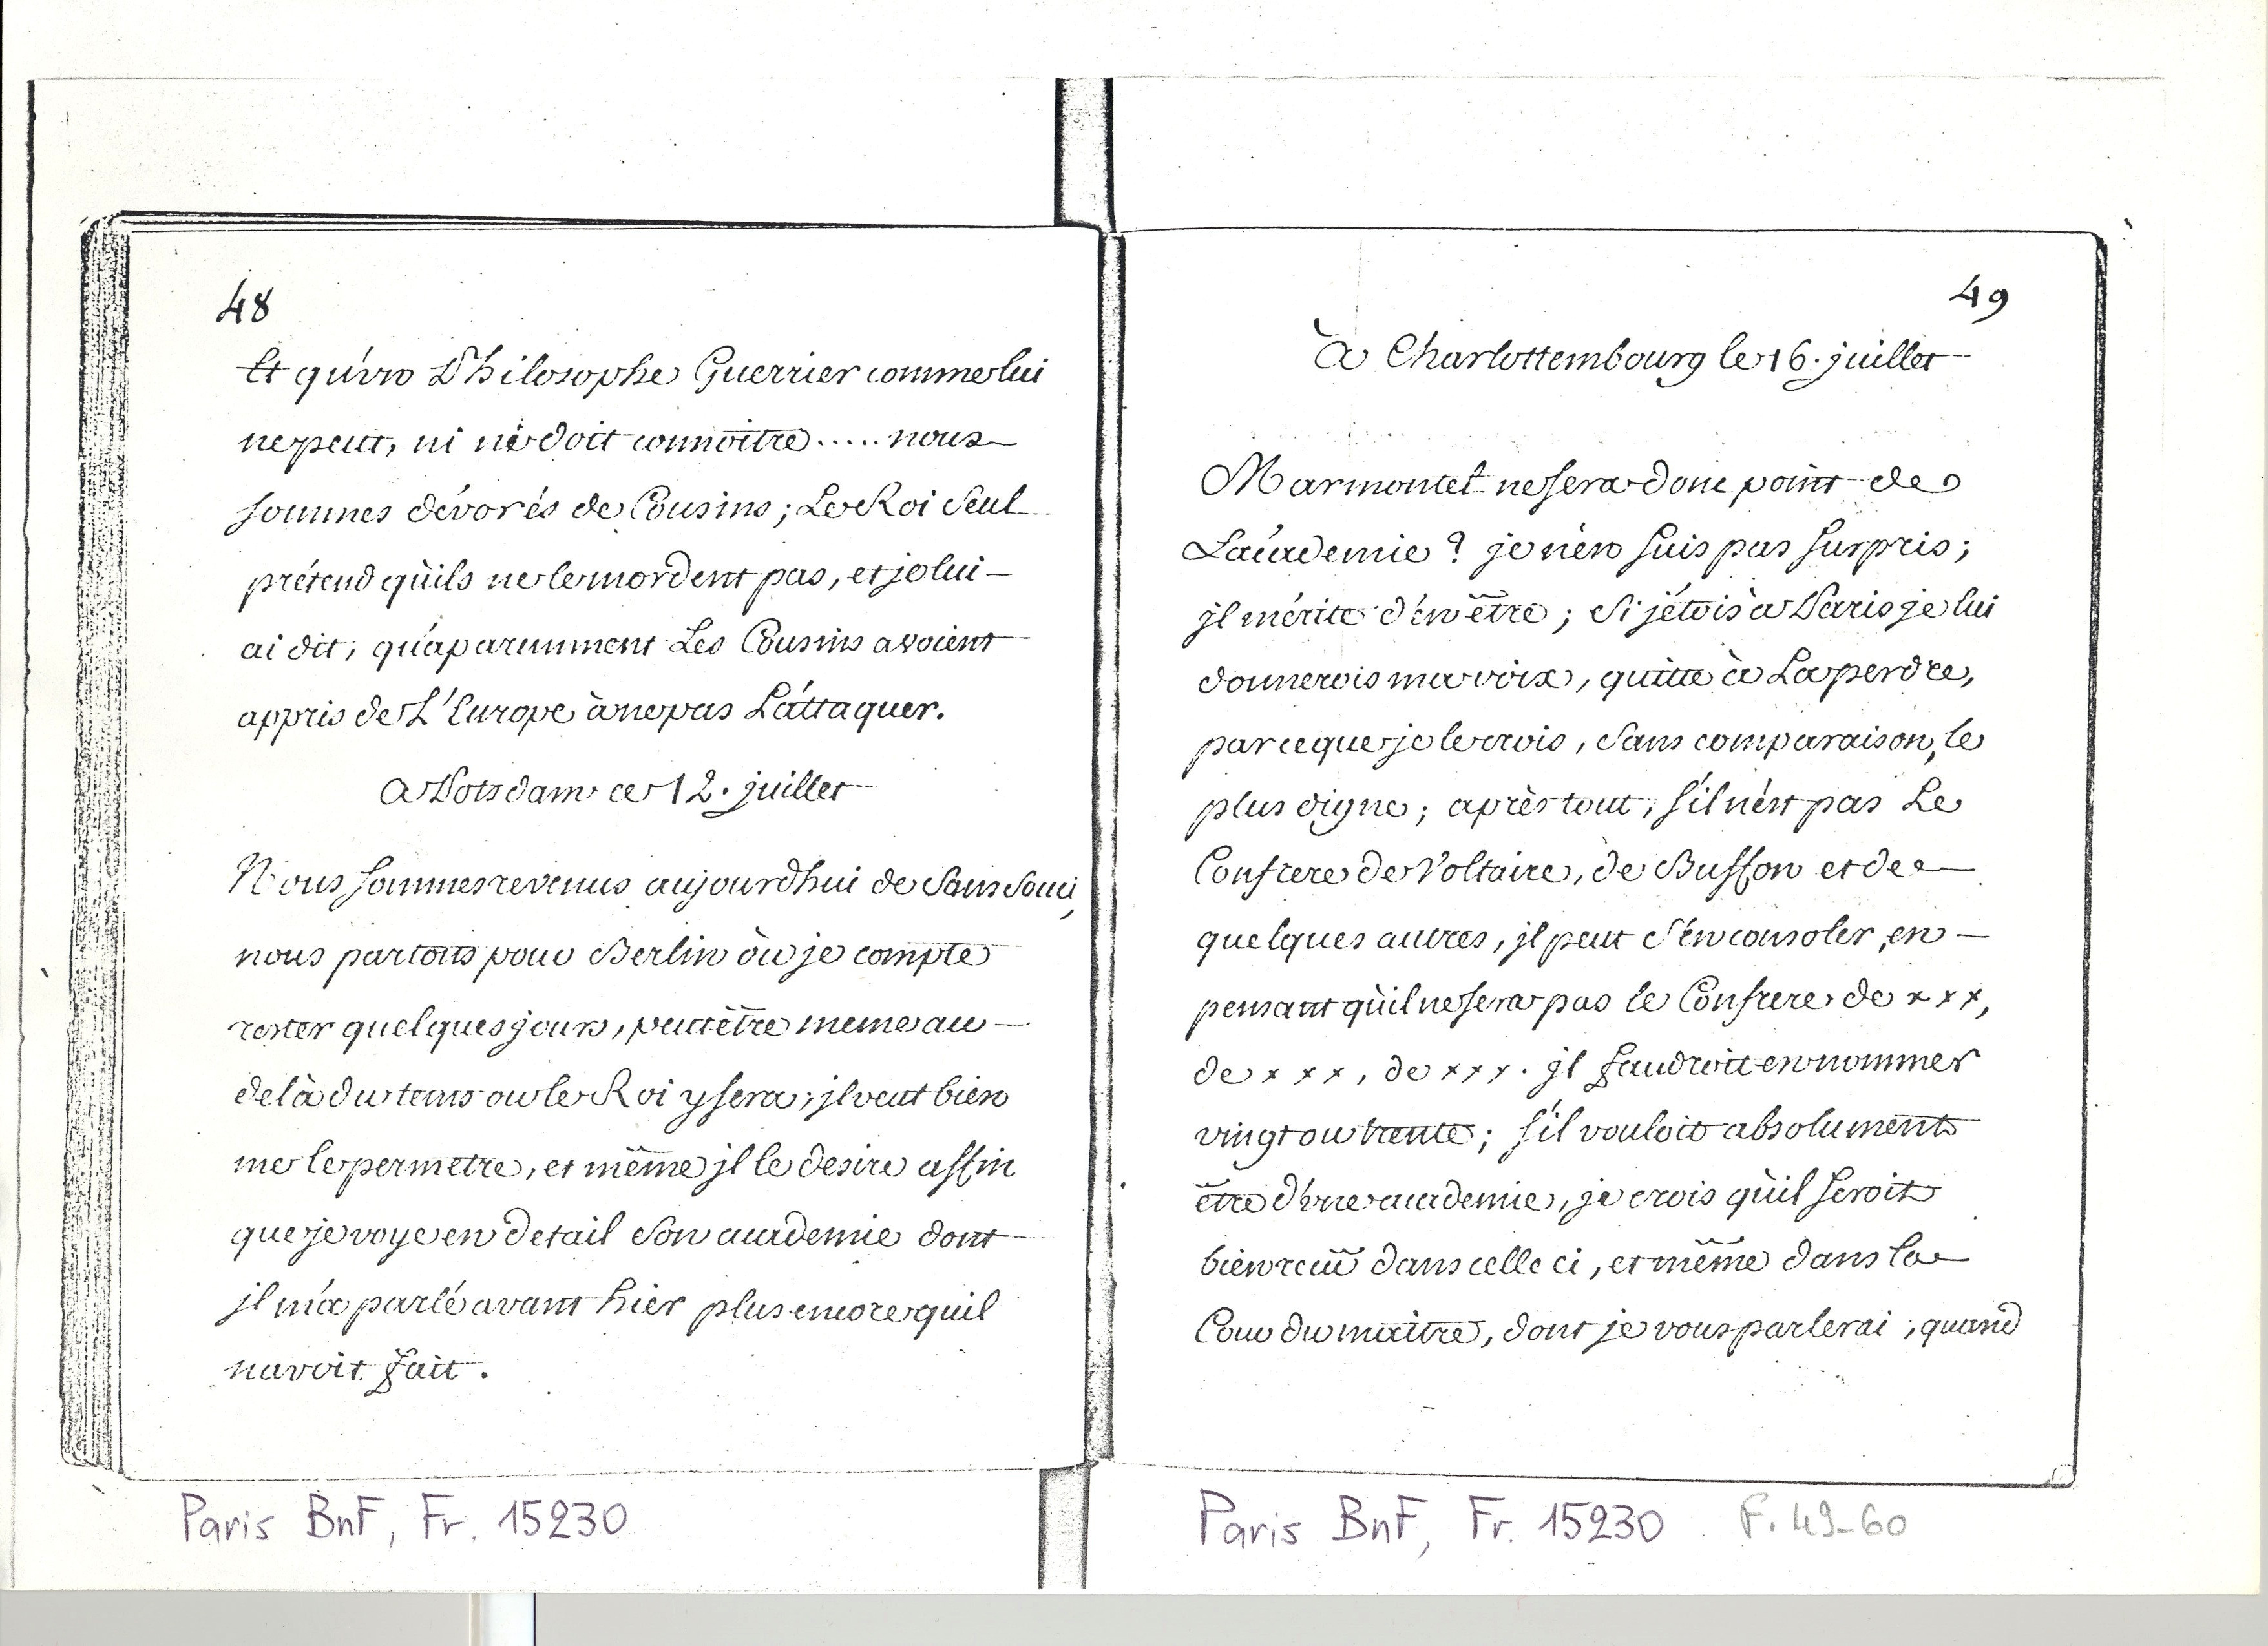 48
Et qu'un Philosophe Guerrier comme lui
ne peut, ni ne doit connoitre ..... nous
sommes dévorés de Cousins; Le Roi seul
prétend qu'ils ne le mordent pas, et je lui
ai dit, qu'aparemment Les Cousins avoient
appris de L'Europe à ne pas L'attaquer.
a Potsdam ce 12. juillet
Nous sommes revenus aujourd'hui de Sans Souci,
nous partons pour Berlin où je compte
rester quelques jours, peut être meme au
delà du tems ou le Roi y sera; jl veut bien
me le permetre, et même jl le desire affin
que je voye en detail son academie dont
jl m'a parlé avant hier plus encore quil
navoit fait.
Paris BnF, Fr. 15230
49
à Charlottembourg le 16. juillet
Marmontel ne sera donc point de
L'academie? je n'en suis pas surpris;
jl mérite d'en être; si j'étois à Paris je lui
donnerois ma voix, quitte à La perdre,
parce que je le crois, sans comparaison, le
plus digne; après tout, s'il n'est pas Le
Confrere de Voltaire, de Buffon et de
quelques autres, jl peut s'en consoler, en
pensant qu'il ne sera pas le Confrere de xxx,
de xxx, de xxx. jl faudroit en nommer
vingt ou trente; s'il vouloit absolument
être d'une academie, je crois qu'il seroit
bien reçu dans celle ci, et même dans la
Cour du maître, dont je vous parlerai, quand
Paris BnF, Fr. 15230 F. 49-60